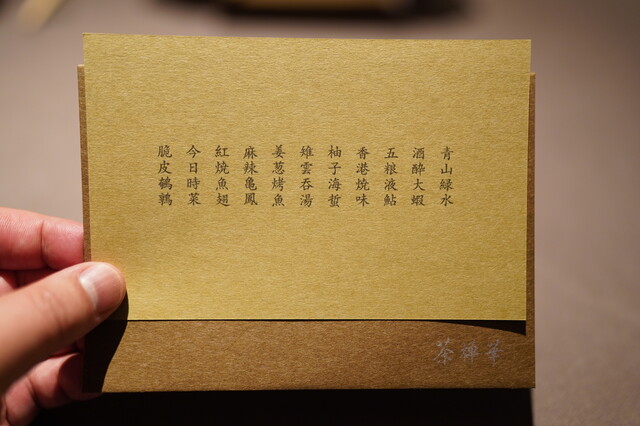 青山緑水
酒醉大蝦
五粮液鮎
香港焼味
柚子海蜇
雉雲吞湯
姜葱烤魚
麻辣亀鳳
紅焼魚翅
今日時菜
脆皮鵪鶉
茶禅華